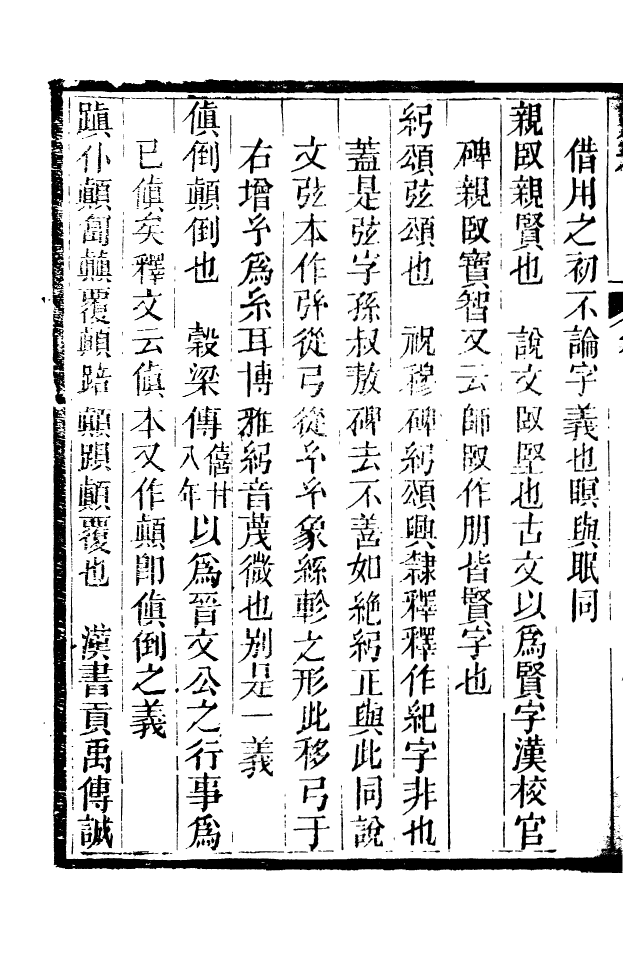 借用之初不論字義也瞑與眠同
親臤親賢也　說文臤堅也古文以爲賢字漢校官
碑親臤寶智又云師臤作朋皆賢字也
䋎頌弦頌也　祝穆碑䋎頌興隸釋釋作紀字非也
蓋是弦字孫叔敖碑去不善如絶䋎正與此同說
文弦本作㢩從弓從𢆯𢆯象絲軫之形此移弓于
右增𢆯爲糸耳博雅䋎音蔑微也別是一義
傎倒顛倒也　穀梁傳僖廿八年以爲晉文公之行事爲
已傎矣釋文云傎本又作顛卽傎倒之義
蹎仆顛匐蘱覆顛踣顛蹞顛覆也　漢書貢禹傳誠